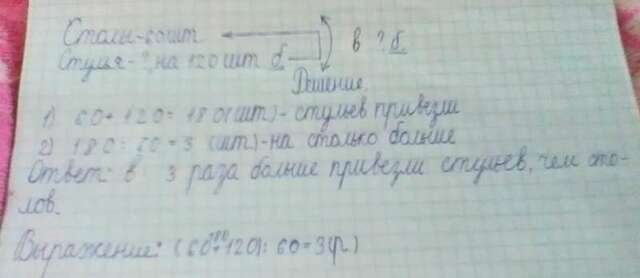 Столы - 60 шт
в ? б.
Стулья - ?, на 120 шт б
Решение.
1) 60 + 120 = 180 (шт) - стульев привезли
2) 180 : 60 = 3 (шт) - на столько больше
Ответ: в 3 раза больше привезли стульев, чем сто-
лов.
180
Выражение: (60+120) : 60 = 3 (р.)